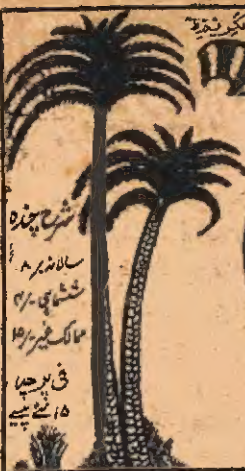 شرح چندہ
سالانہ -/۸
ششماہی -/۴
ممالک غیر -/۱۵
فی پرچہ
۱۵ نئے پیسے